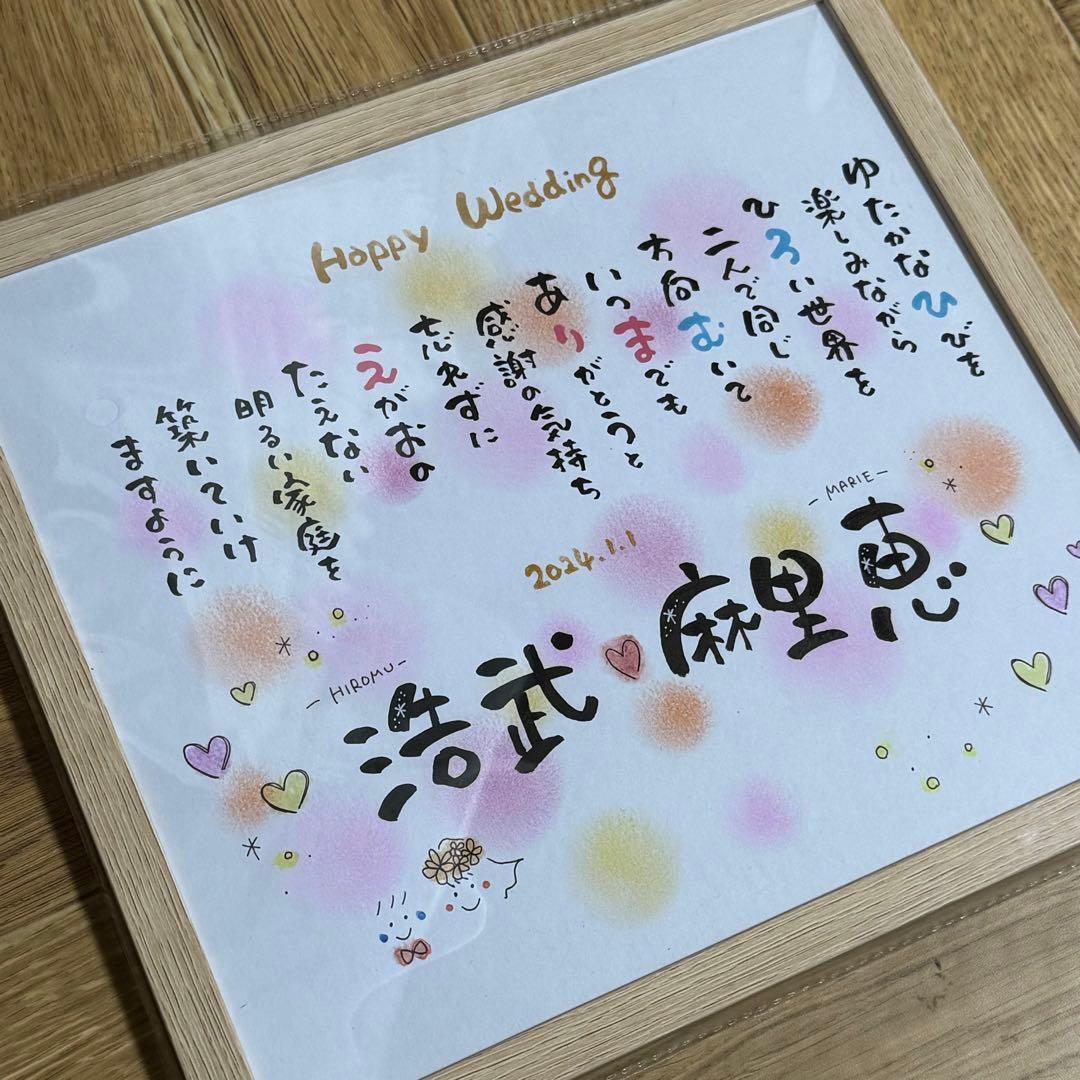 Happy Wedding
ゆたかなひびを
楽しみながら
ひろい世界を
二人で同じ
方向むいて
いつまでも
ありがとうと
感謝の気持ち
忘れずに
えがおの
たえない
明るい家庭を
築いていけ
ますように
2024.1.1
-MARIE-
麻里恵
-HIROMU-
浩武